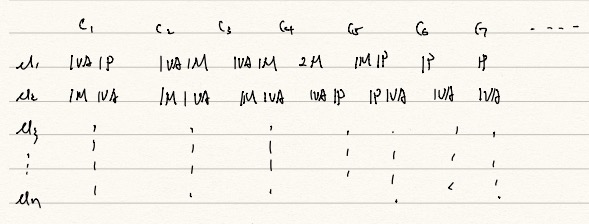 C1 C2 C3 C4 C5 C6 C7 - - - -
M1 1VA 1P 1VA 1M 1VA 1M 2M 1M 1P 1P 1P
M2 1M 1VA 1M 1VA 1M 1VA 1VA 1P 1P 1VA 1VA 1VA
M3
Mn